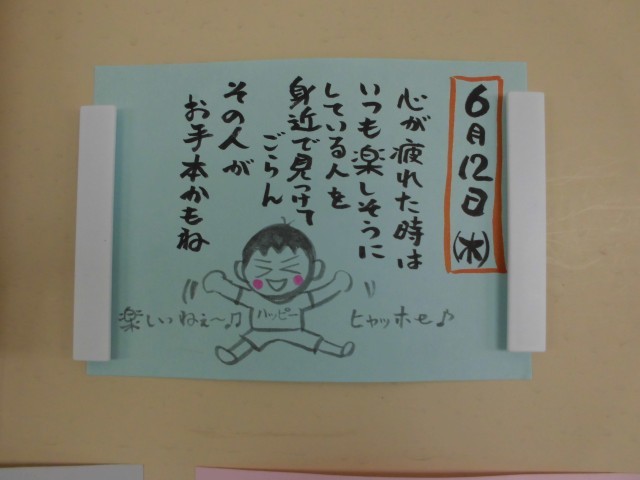 6月12日(水)
心が疲れた時は
いつも楽しそうに
している人を
身近で見つけて
ごらん
その人が
お手本かもね
楽しいねぇ〜♫
ハッピー
ヒャッホセ♪